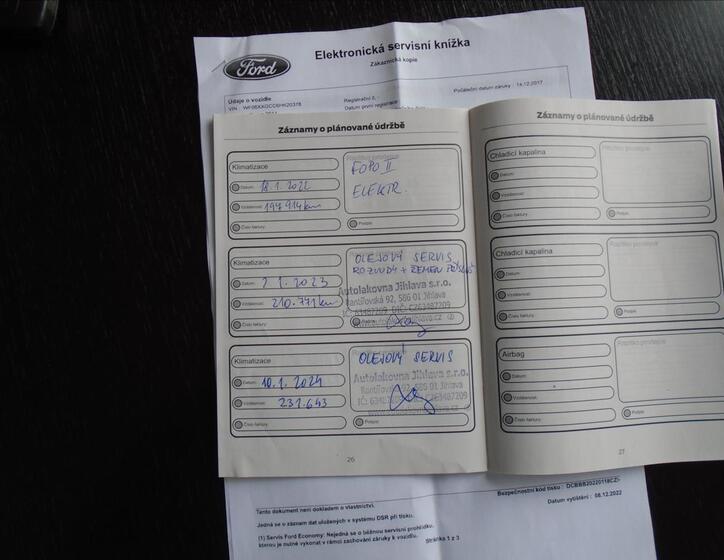 Elektronická servisní knížka
Zákaznická kopie
Ford
Údaje o vozidle
Registrační č.
Počáteční datum záruky : 14.12.2017
Datum první registrace
Záznamy o plánované údržbě
Klimatizace
Datum: 18.1.2022
Vzdálenost: 197 914 km
Číslo faktury:
ELEKTR.
Podpis:
Klimatizace
Datum: 2.1.2023
Vzdálenost: 210.771 km
Číslo faktury:
OLEJOVÝ SERVIS
ROZVODY + ŘEMEN
Autolakovna Jihlava s.r.o.
Rantířovská 92, 586 01 Jihlava
IČ: 63487209 DIČ: CZ63487209
Klimatizace
Datum: 10.1.2024
Vzdálenost: 231.643
Číslo faktury:
OLEJOVÝ SERVIS
Autolakovna Jihlava s.r.o.
Rantířovská 92, 586 01 Jihlava
Podpis:
26
Záznamy o plánované údržbě
Chladicí kapalina
Datum:
Vzdálenost:
Číslo faktury:
Razítko prodejce
Podpis:
Chladicí kapalina
Datum:
Vzdálenost:
Číslo faktury:
Razítko prodejce
Podpis:
Airbag
Datum:
Vzdálenost:
Číslo faktury:
Razítko prodejce
Podpis:
27
Bezpečnostní kód tisku : DCBBB20220118CZF
Datum vytištění : 08.12.2022
Tento dokument není dokladem o vlastnictví.
Jedná se o záznam dat uložených v systému DSR při tisku.
(1) Servis Ford Economy: Nejedná se o běžnou servisní prohlídku,
kterou je nutné vykonat v rámci zachování záruky k vozidlu.
Stránka 1 z 3